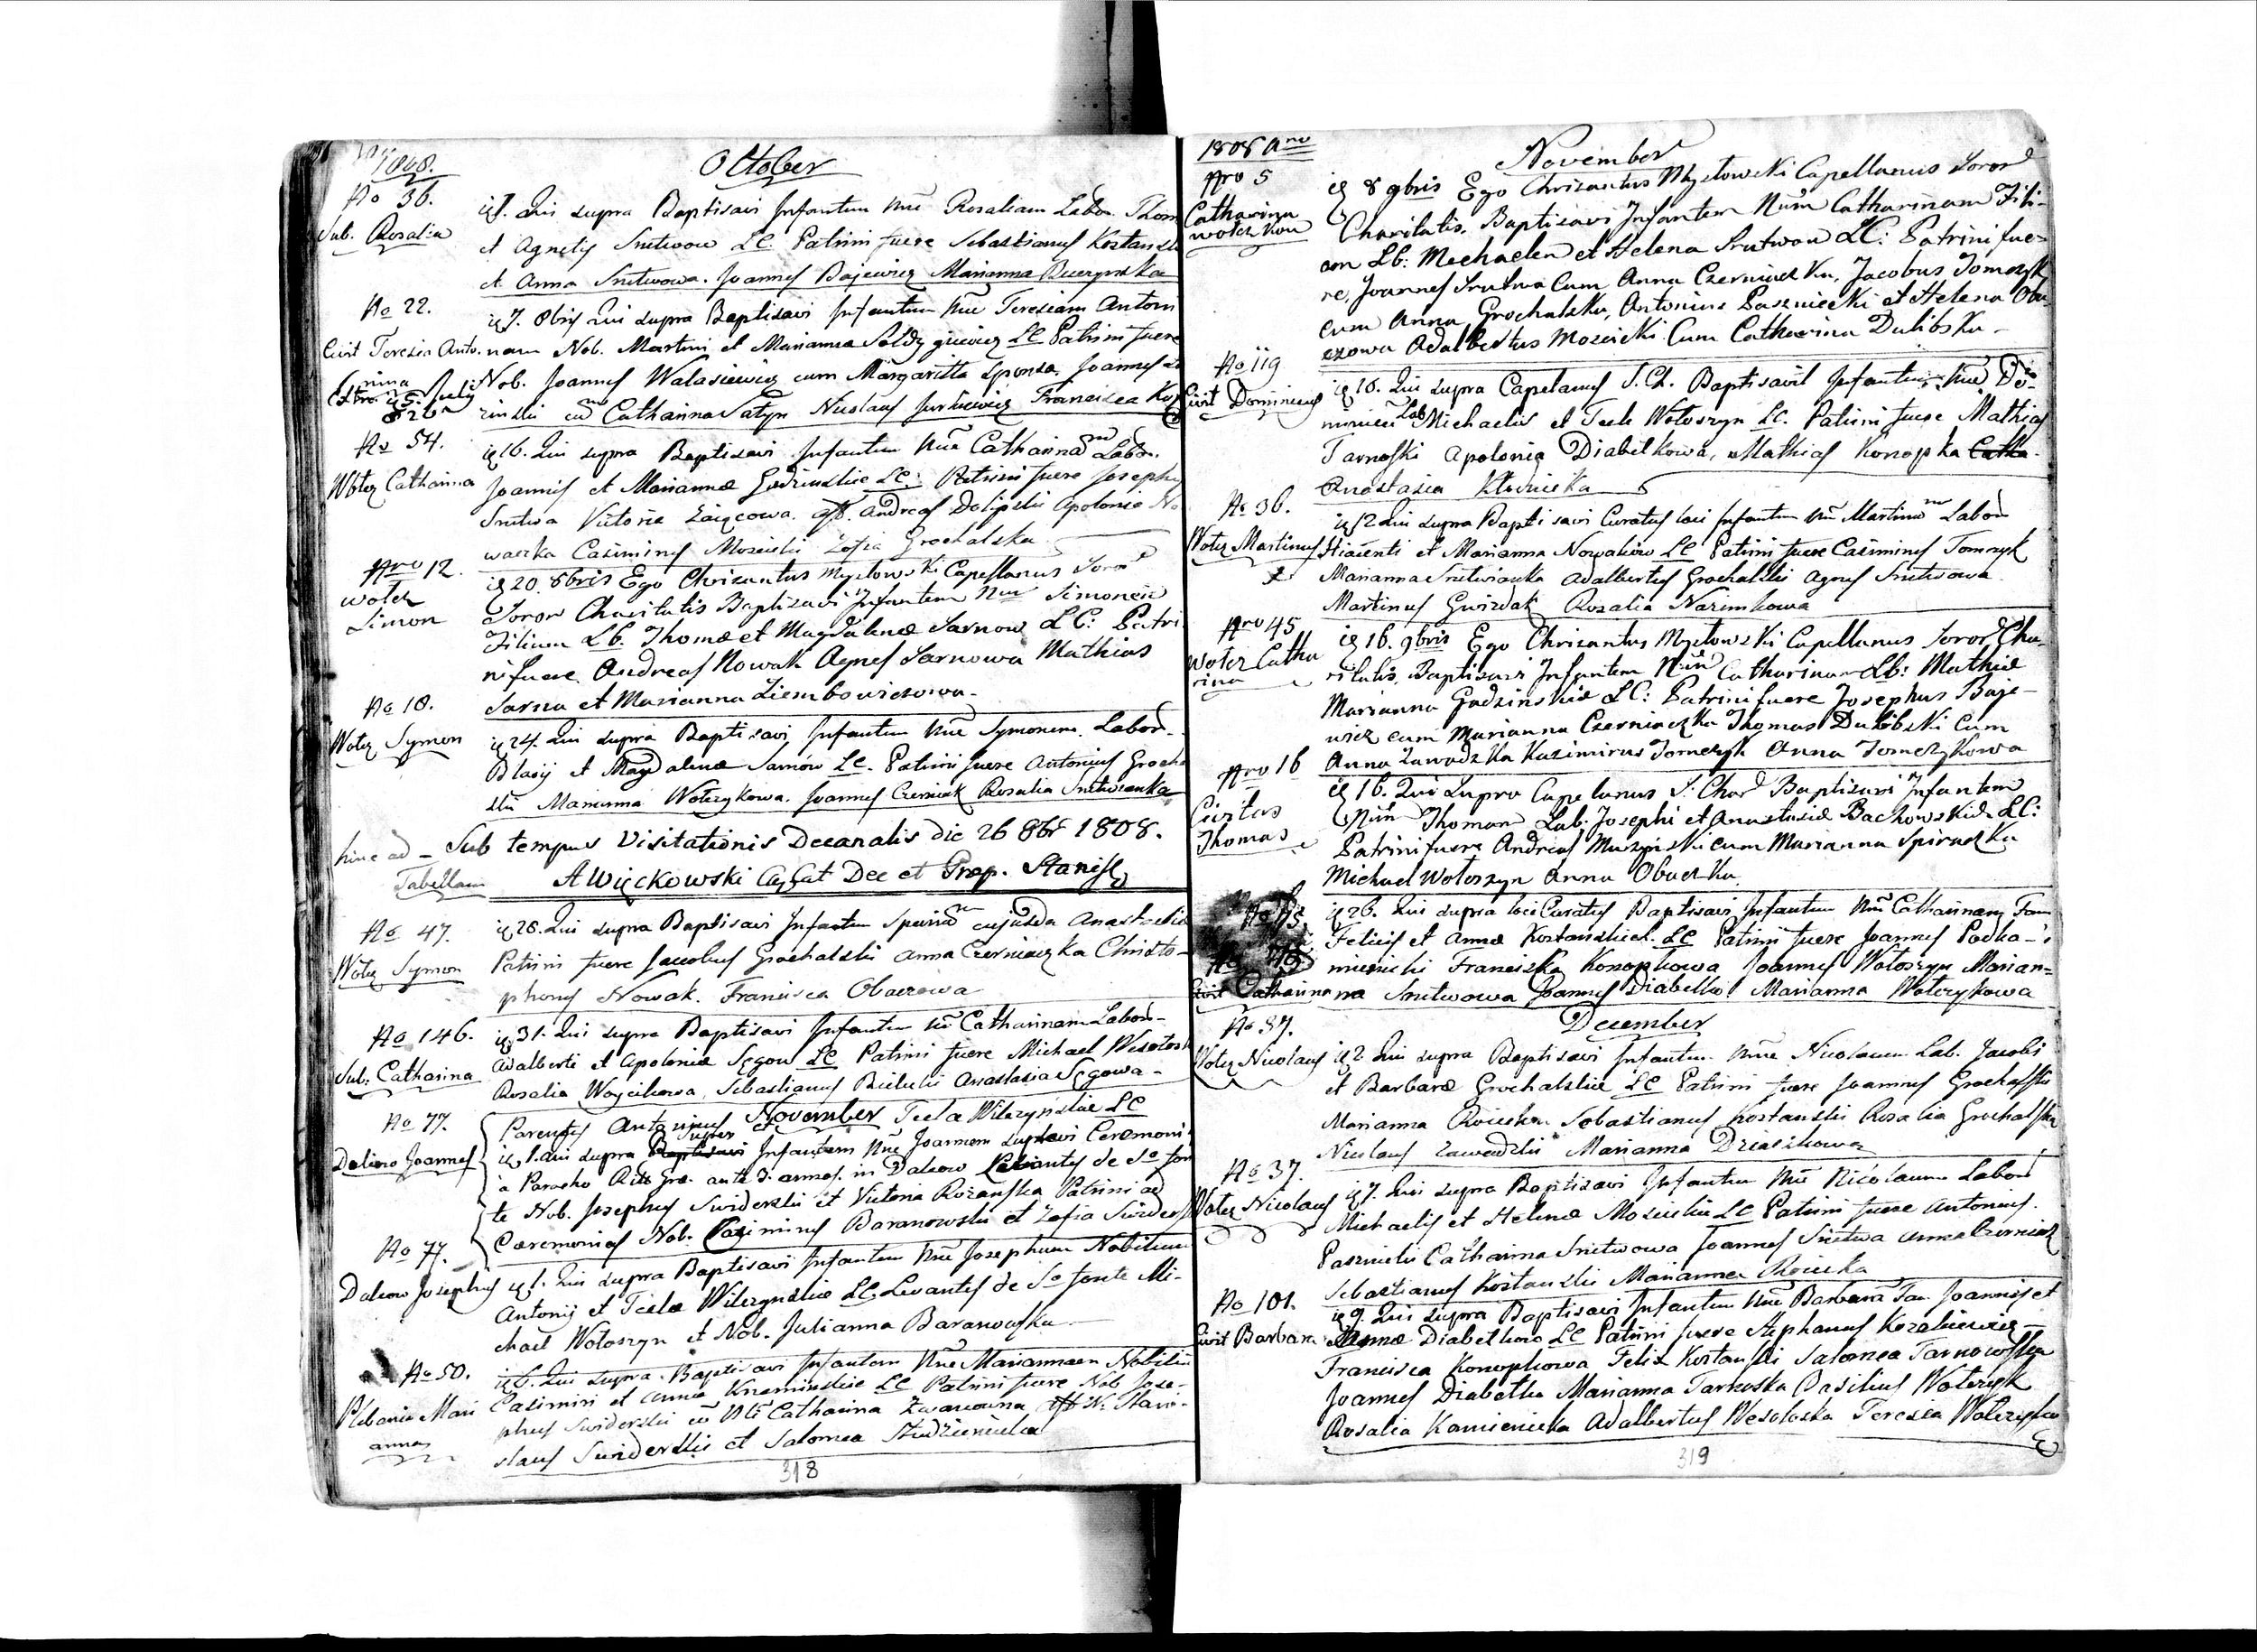 1808.
October
No 36.
Sub. Rosalia
7. Qui supra Baptisavi Infantem Nne Rosaliam Labor. Thom
et Agnetis Srutwow LC. Patrini fuere Sebastianus Kostansk
et Anna Srutwowa. Joannes Bajewicz Marianna Buczynska
No 22.
Civit Teresia Anto-
nina
7. 8bris Qui supra Baptisavi Infantem Nne Teresiam Antoni
nam Nob. Martini et Marianna LC Patrini fuere
Nob. Joannes Walasiewicz cum Margaritta Sponsa. Joannes
Catharina Nicolaus Jurkiewicz Francisca
No 54.
Wotez Catharina
16. Qui supra Baptisavi Infantem Nne Catharinam Labor.
Joannis et Marianna Godzinskie LC: Patrini fuere Josephus
Srutwa Victoria Zaięcowa. Ass. Andreas Dolipski Apolonia No
waczka Casimirus Moscicki Zofia Grochalska
Nro 12.
Wotez
Simon
20. 8bris Ego Chrizantus Mysłowski Capellanus Soror
Soror Charitatis Baptisavi Infantem Num Simonem
Filium Lb. Thomæ et Magdalenæ Sarnow LC: Patri
ni fuere Andreas Nowak Agnes Sarnowa Mathias
Sarna et Marianna Ziembowiczowa.
No 10.
Wotez Symon
24. Qui supra Baptisavi Infantem Nne Symonem. Labor.
Blasij et Magdalenæ Sarnów LC. Patrini fuere Antonius Grocha
lski Marianna Wotczykowa. Joannes Czerniak Rosalia Srutwianka
hinc ad
Tabellam
Sub tempus Visitationis Decanalis Die 26 8br 1808.
AWięckowski Dec et Prep. Stanisł
No 47.
Wotez Symon
28. Qui supra Baptisavi Infantem cujusda Anastasia
Patrini fuere Jacobus Grochalski Anna Czerniaczka Christo-
phorus Nowak. Francisca Obaczowa
No 146.
Sub. Catharina
31. Qui supra Baptisavi Infantem Nne Catharinam Labor-
Adalberti et Apoloniæ Sęgow LC Patrini fuere Michael
Rosalia Woycikowa, Sebastianus Bielecki Anastasia Sęgowa-
November
No 77.
Dalewo Joannes
Parentes Antonius et Tecla Wilczynskie LC
1. Qui supra Infantem Nne Joannem Ceremoni
a Parocho Ritt Gra. ante 3. annos. in Daleow Levantes de So fon
te Nob. Josephus Swiderski et Victoria Rożanska Patrini ad
Cæremonias Nob. Casimirus Baranowski et Zofia
No 77.
Dalewo Josephus
1. Qui supra Baptisavi Infantem Nne Josephum Nobilium
Antonij et Teclæ Wilczynskie LC Levantes de So fonte Mi-
chael Wołoszyn et Nob. Julianna Baranowska
No 50.
Plebania Mari
anna
6. Qui supra Baptisavi Infantem Nne Mariannam Nobiliu
Casimiri et Annæ Kraminskie LC Patrini fuere Nob Jose-
phus Swiderski Catharina Zwanowna Ass N. Stani-
slaus Swiderski et Salomea
318
1808 Ano
November
Nro 5
Catharina
Wotczkow
8 9bris Ego Chrizantus Mysłowski Capellanus Soror
Charitatis, Baptisavi Infantem Num Catharinam Fili-
am Lb: Mechaelen et Helena Srutwow LC: Patrini fue-
re, Joannes Srutwa Cum Anna Czerniaczka, Jacobus Tomczyk
cum Anna Grochalska, Antonius Paszniecki et Helena Oba-
czowa Adalbertus Moscicki Cum Catharina Dulibska-
No 119
Civit Dominicus
10. Qui supra Capelanus S. Ch. Baptisavit Infantem Nne Do-
minicu Lab Michaelis et Tecle Wołoszyn LC. Patrini fuere Mathias
Tarnoski Apolonia Diabelkowa, Mathias Konopka
Anastasia
No 36.
Wotez Martinus
12 Qui supra Baptisavi Curatus loci Infantem Nne Martinu Labor
Hiacenti et Marianna Nowaków LC Patrini fuere Casimirus Tomczyk
Marianna Srutwianka Adalbertus Grochalski Agnes Srutwowa
Martinus Gwizdak Rosalia Nazimkowa
Nro 45
Wotez Catha
rina
16. 9bris Ego Chrizantus Mysłowski Capellanus Soror Cha-
ritatis, Baptisavi Infantem Num Catharinam Lb: Mathie
Marianna Godzinskie LC: Patrini fuere Josephus Baje-
wicz cum Marianna Czerniaczka Thomas Dulibski Cum
Anna Zawadzka Kazimirus Tomczyk Anna Tomczykowa
Nro 16
Civitas
Thomas
16. Qui Supra Capelanus S: Char Baptisavi Infantem
Num Thomam Lab: Josephi et Anastasiæ Bachowskie LC:
Patrini fuere Andreas Murzynski cum Marianna Spiraczka
Michael Wołoszyn Anna Obaczka
Civit Catharina
26. Qui supra loci Curatus Baptisavi Infantem Nne Catharinam Fam
Felicis et Annæ Kostanskich. LC Patrini fuere Joannes Podka-
mienicki Franciszka Konopkowa Joannes Wołoszyn Marian=
na Srutwowa Joannes Diabelko Marianna Wotczykowa
December
No 87.
Wotez Nicolaus
2 Qui supra Baptisavi Infantem Nne Nicolaum Lab. Jacobi
et Barbaræ Grochalskie LC Patrini fuere Joannes Grochalski
Marianna Sebastianus Kostanski Rosalia Grochalska
Nicolaus Zawadzki Marianna
No 37.
Wotez Nicolaus
7. Qui supra Baptisavi Infantem Nne Nicolaum Labor
Michaelis et Helenæ Moscickie LC Patrini fuere Antonius
Pasznicki Catharina Srutwowa Joannes Srutwa Anna Czerniak
Sebastianus Kostanski Marianna
No 101.
Civit Barbara
9. Qui supra Baptisavi Infantem Nne Barbara Fam Joannis et
Annæ Diabelkow LC Patrini fuere Stephanus Kozakiewicz
Francisca Konopkowa Felix Kostanski Salomea Tarnowska
Joannes Diabelka Marianna Tarnoska Basilius Wotczyk
Rosalia Kamienicka Adalbertus Wesołoska Teresia Wotczyko
319